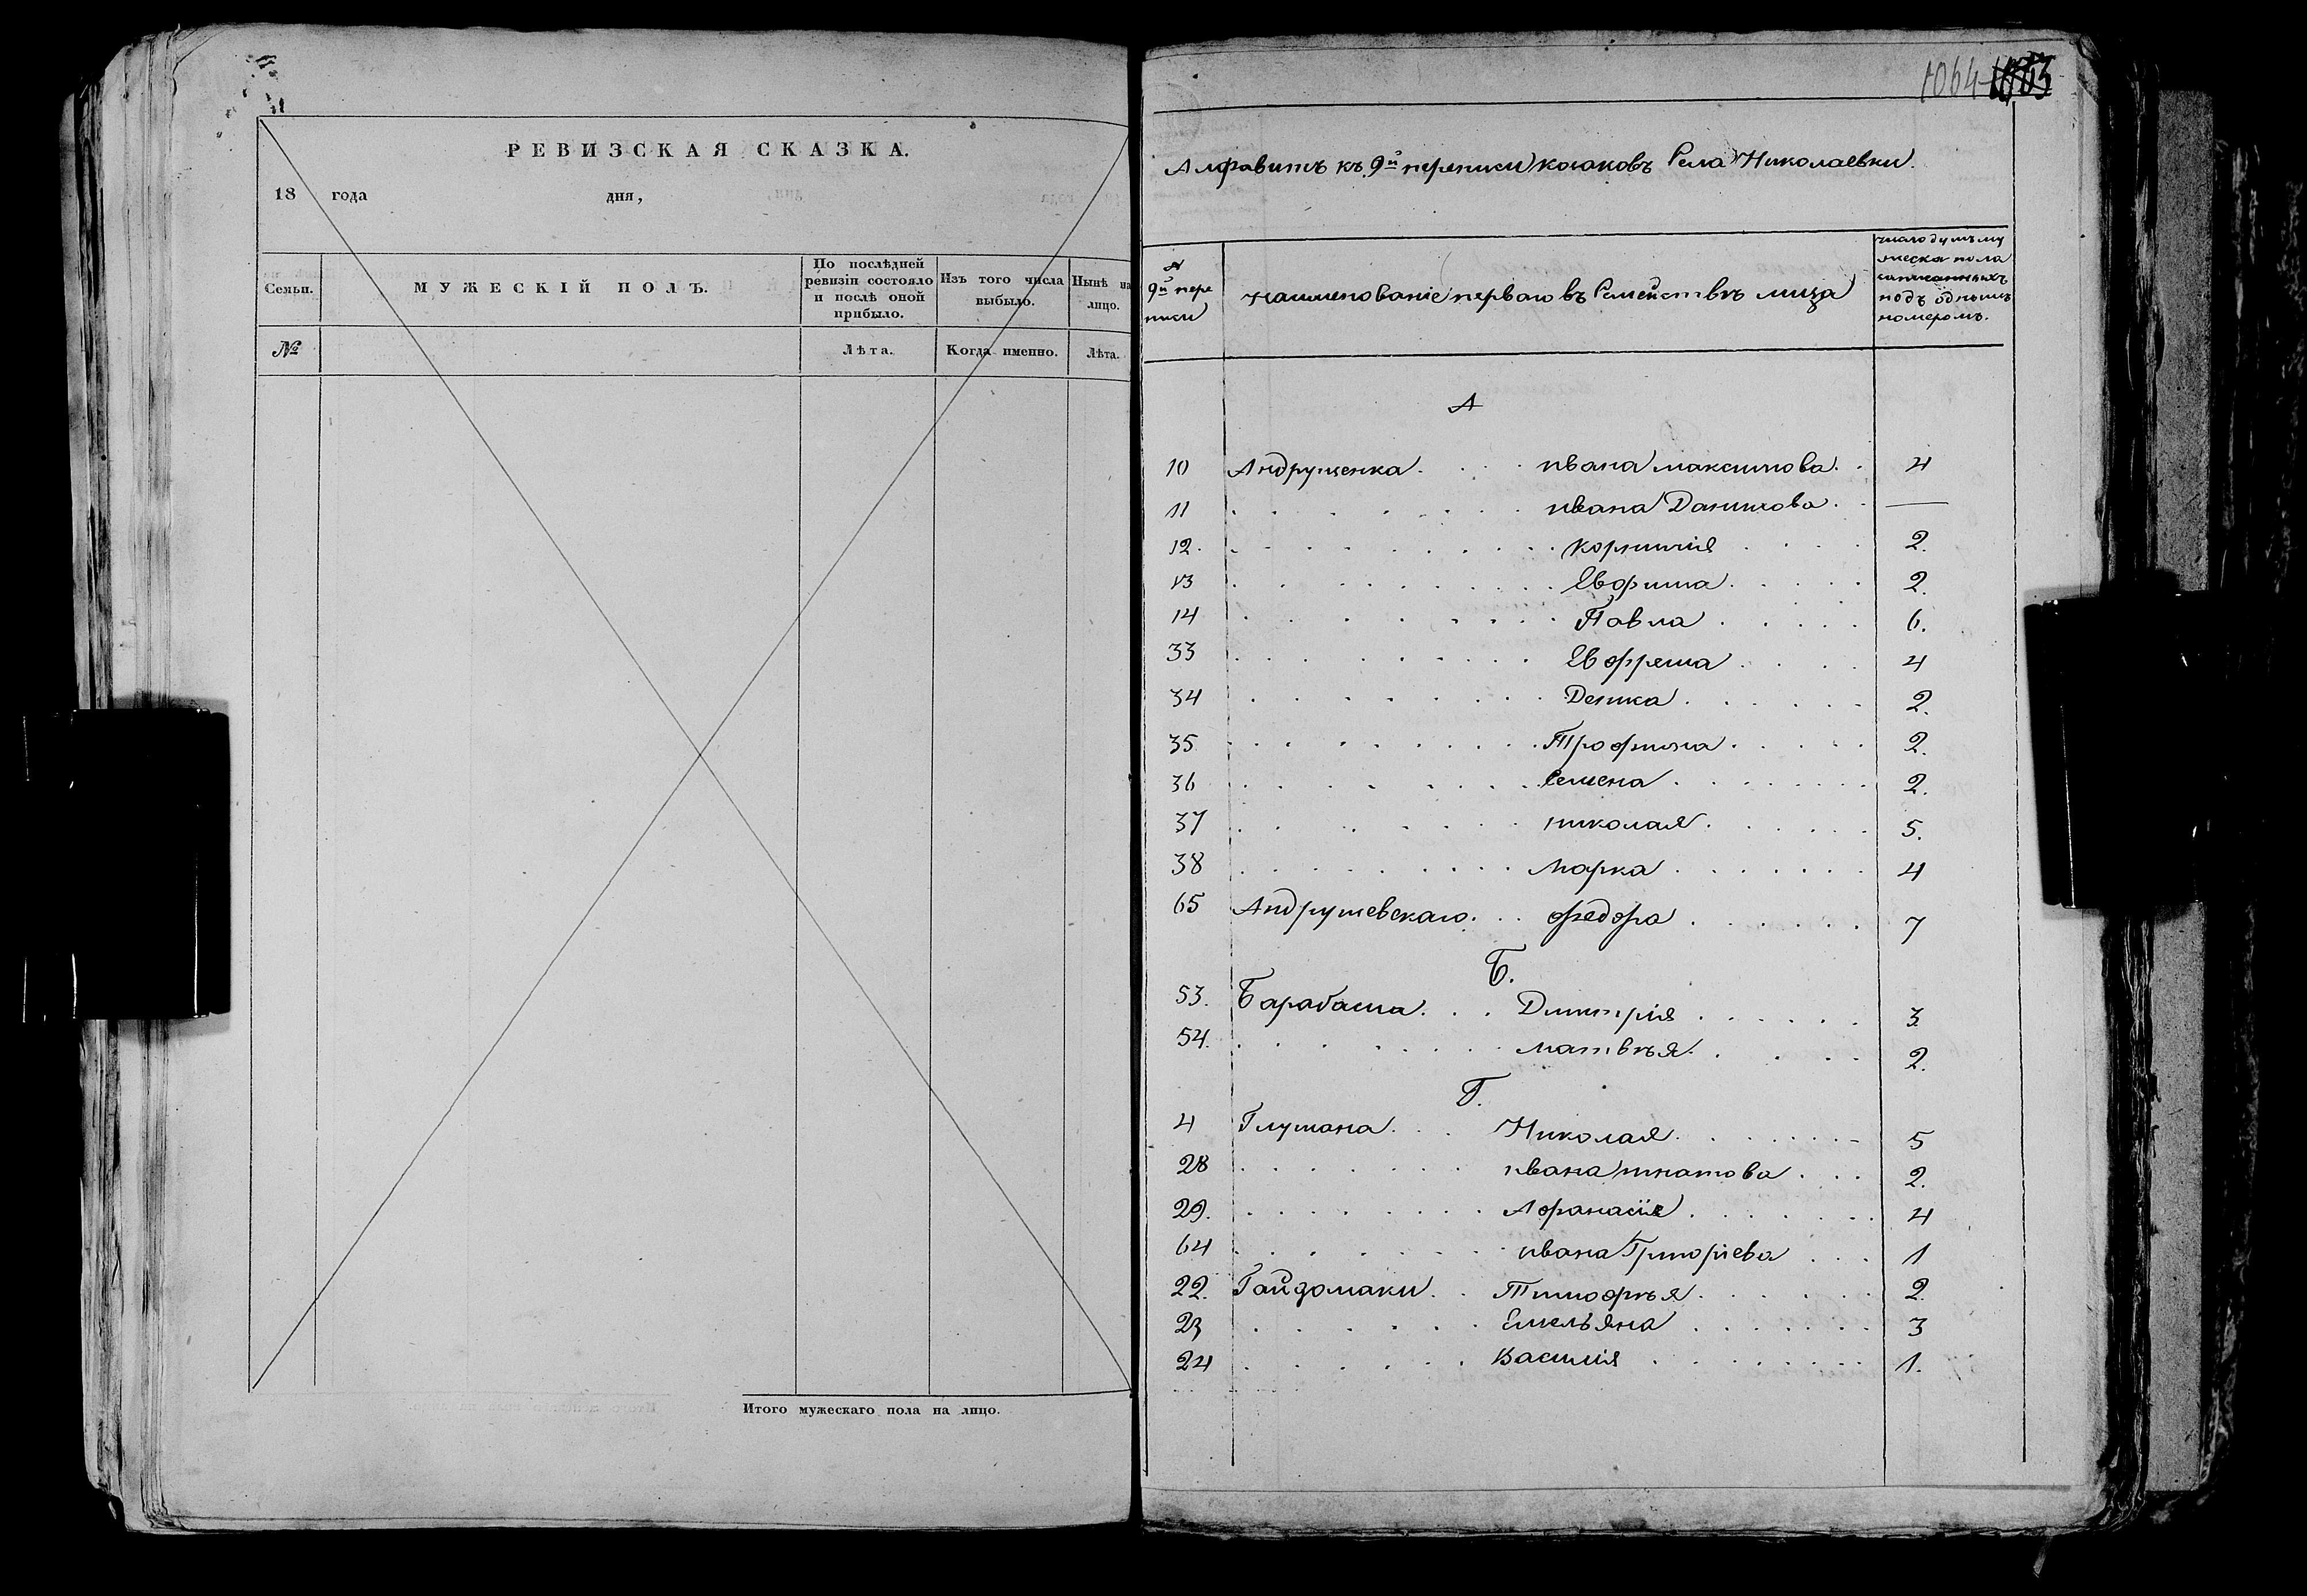 РЕВИЗСКАЯ СКАЗКА.
18 года дня,
Семьи.
МУЖЕСКІЙ ПОЛЪ.
По послѣдней
ревизіи состояло
и послѣ оной
прибыло.
Изъ того числа
выбыло.
Нынѣ на
лицо.
№
Лѣта.
Когда именно.
Лѣта.
Итого мужескаго пола на лицо.
1064
Алфавитъ къ 9й переписи козаковъ Села Николаевки.
№
9й пере
писи
Наименованіе перваго въ Семействѣ лица
число душъ му
жеска пола
записанныхъ
подъ однимъ
номеромъ.
А
10 Андрущенка . . . ивана максимова . . 4
11 . . . ивана Данилова . . —
12. . . . корнилія . . . 2.
13 . . . Евфима . . . 2.
14 . . . Павла . . . 6.
33 . . . Евфрема . . . 4
34 . . . Демка . . . 2.
35 . . . Трофима . . . 2.
36 . . . Семена . . . 2.
37 . . . николая . . . 5.
38 . . . марка . . . 4
65 Андрушевскаго . . . федора . . . 7
Б.
53. Барабаша . . . Димитрія . . . 3.
54. . . . матвѣя . . . 2.
Г.
4 Глушана . . . Николая . . . 5
28 . . . ивана игнатова . . . 2.
29. . . . Афанасія . . . 4
64 . . . ивана Григоріева . . . 1
22. Гайдомаки . . Тимофѣя . . . 2.
23 . . . Емельяна . . . 3
24 . . . Василія . . . 1.